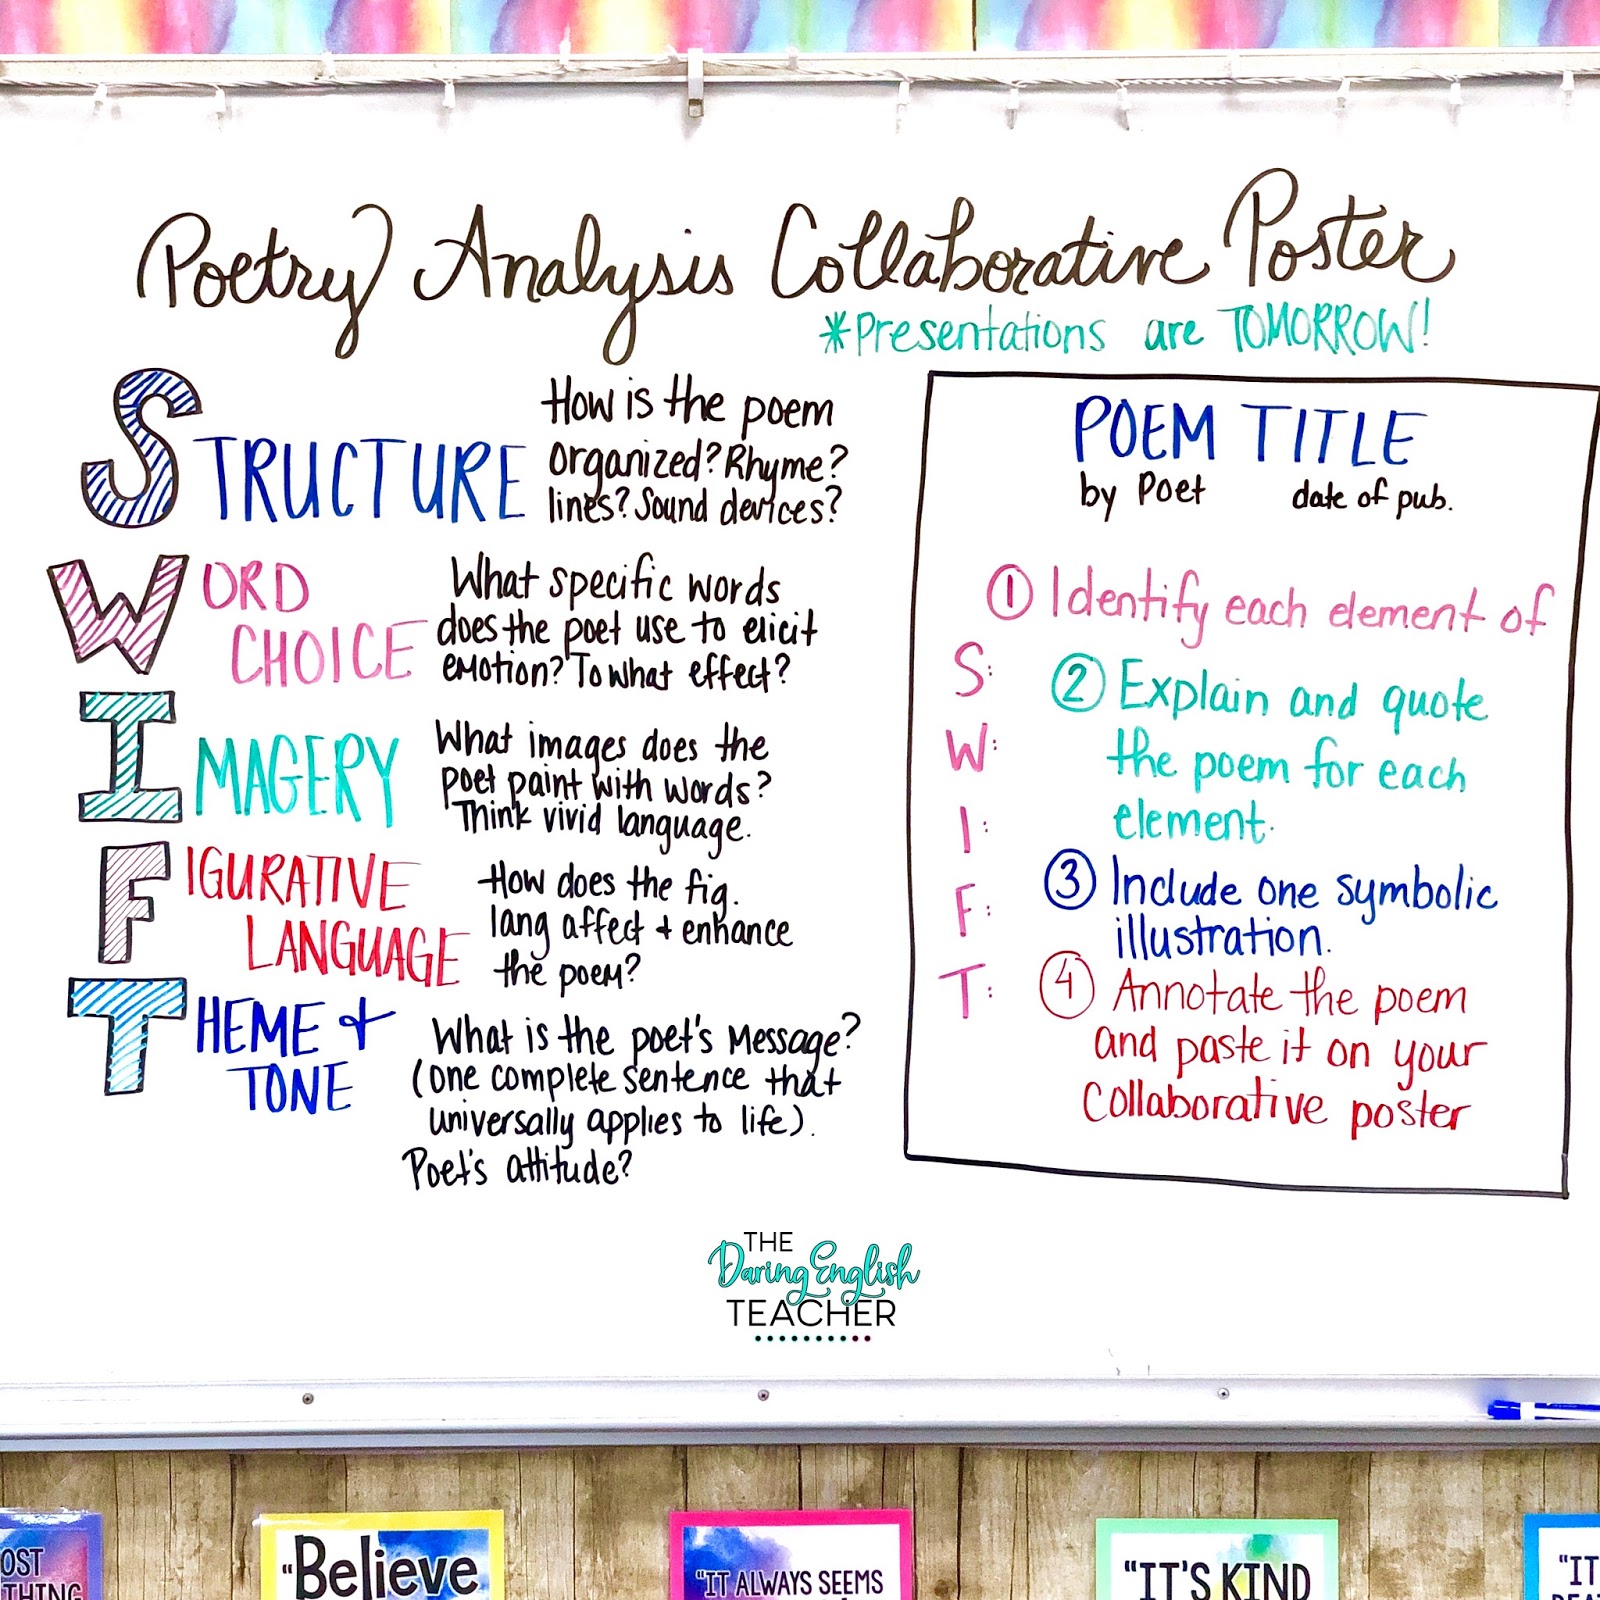 Poetry Analysis Collaborative Poster
*Presentations are TOMORROW!
STRUCTURE
How is the poem
organized? Rhyme?
lines? Sound devices?
WORD
CHOICE
What specific words
does the poet use to elicit
emotion? To what effect?
IMAGERY
What images does the
poet paint with words?
Think vivid language.
FIGURATIVE
LANGUAGE
How does the fig.
lang affect + enhance
the poem?
THEME +
TONE
What is the poet's message?
(one complete sentence that
universally applies to life).
Poet's attitude?
POEM TITLE
by Poet date of pub.
① Identify each element of
S:
W:
I:
F:
T:
② Explain and quote
the poem for each
element.
③ Include one symbolic
illustration.
④ Annotate the poem
and paste it on your
Collaborative poster
THE
Daring English
TEACHER
OST
THING
"Believe
"IT ALWAYS SEEMS
"IT'S KIND
"IT